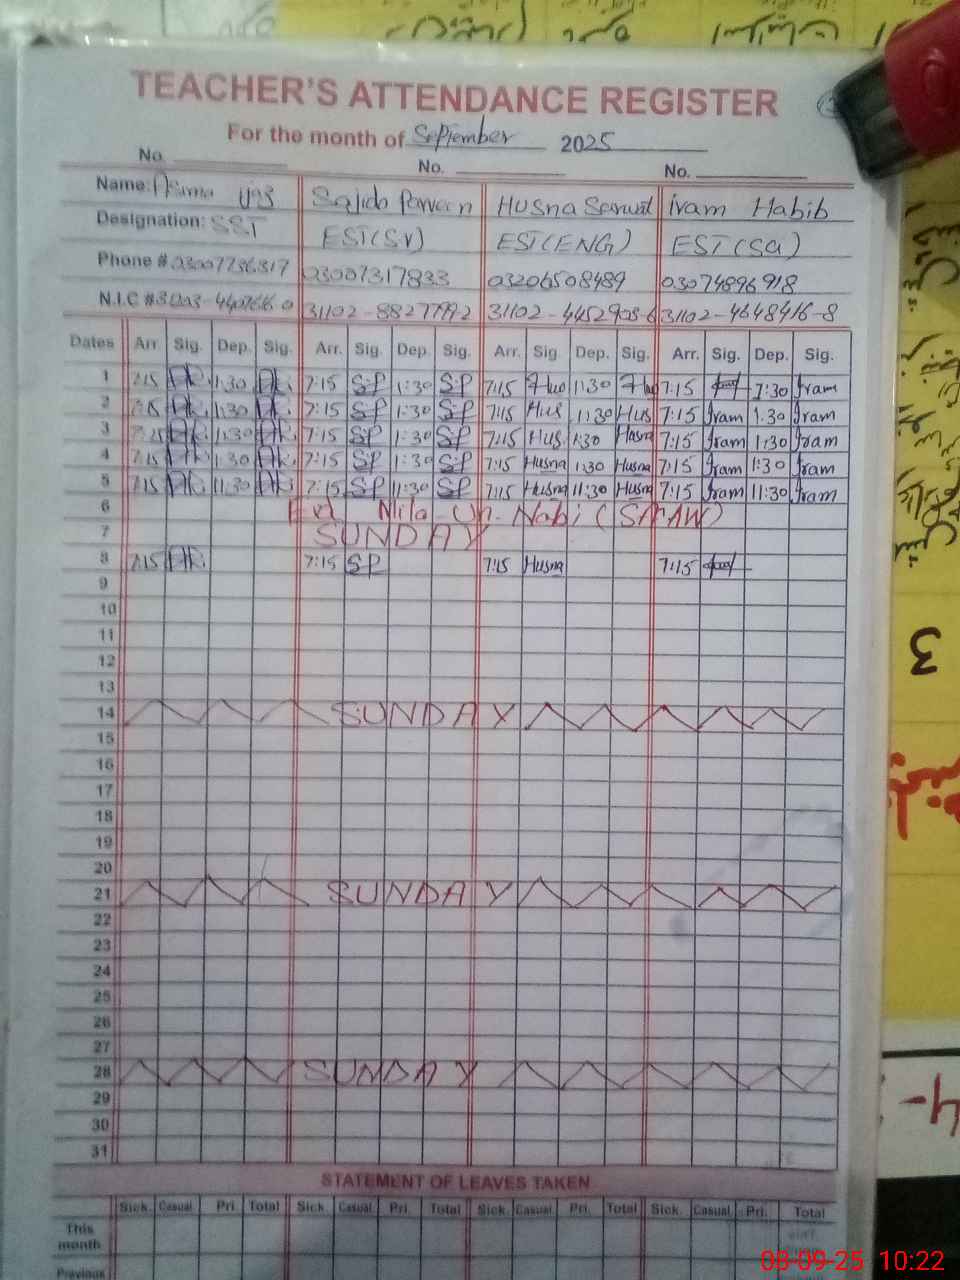 TEACHER'S ATTENDANCE REGISTER
For the month of September 2025
No. No. No.
Name: Asma Sajida Parveen Husna Sarwat Iram Habib
Designation: SST EST(SV) EST(ENG) EST(SQ)
Phone # 03007736317 03007317833 03206508489 03074896918
N.I.C # 31102-8827799-2 31102-4452903-6 31102-4648416-8
Dates Arr. Sig. Dep. Sig. Arr. Sig. Dep. Sig. Arr. Sig. Dep. Sig. Arr. Sig. Dep. Sig.
1 7:15 1:30 7:15 SP 1:30 SP 7:15 Hus 1:30 7:15 7:30 Iram
2 7:15 1:30 7:15 SP 1:30 SP 7:15 Hus 1:30 Hus 7:15 Iram 1:30 Iram
3 7:15 1:30 7:15 SP 1:30 SP 7:15 Hus 1:30 Husna 7:15 Iram 1:30 Iram
4 7:15 1:30 7:15 SP 1:30 SP 7:15 Husna 1:30 Husna 7:15 Iram 1:30 Iram
5 7:15 11:30 7:15 SP 11:30 SP 7:15 Husna 11:30 Husna 7:15 Iram 11:30 Iram
6 Eid Mila-Un-Nabi (SAAW)
7 SUNDAY
8 7:15 7:15 SP 7:15 Husna 7:15
9
10
11
12
13
14 SUNDAY
15
16
17
18
19
20
21 SUNDAY
22
23
24
25
26
27
28 SUNDAY
29
30
31
STATEMENT OF LEAVES TAKEN
Sick. Casual Pri. Total Sick. Casual Pri. Total Sick. Casual Pri. Total Sick. Casual Pri. Total
This month
Previous
3
4-
08-09-25 10:22